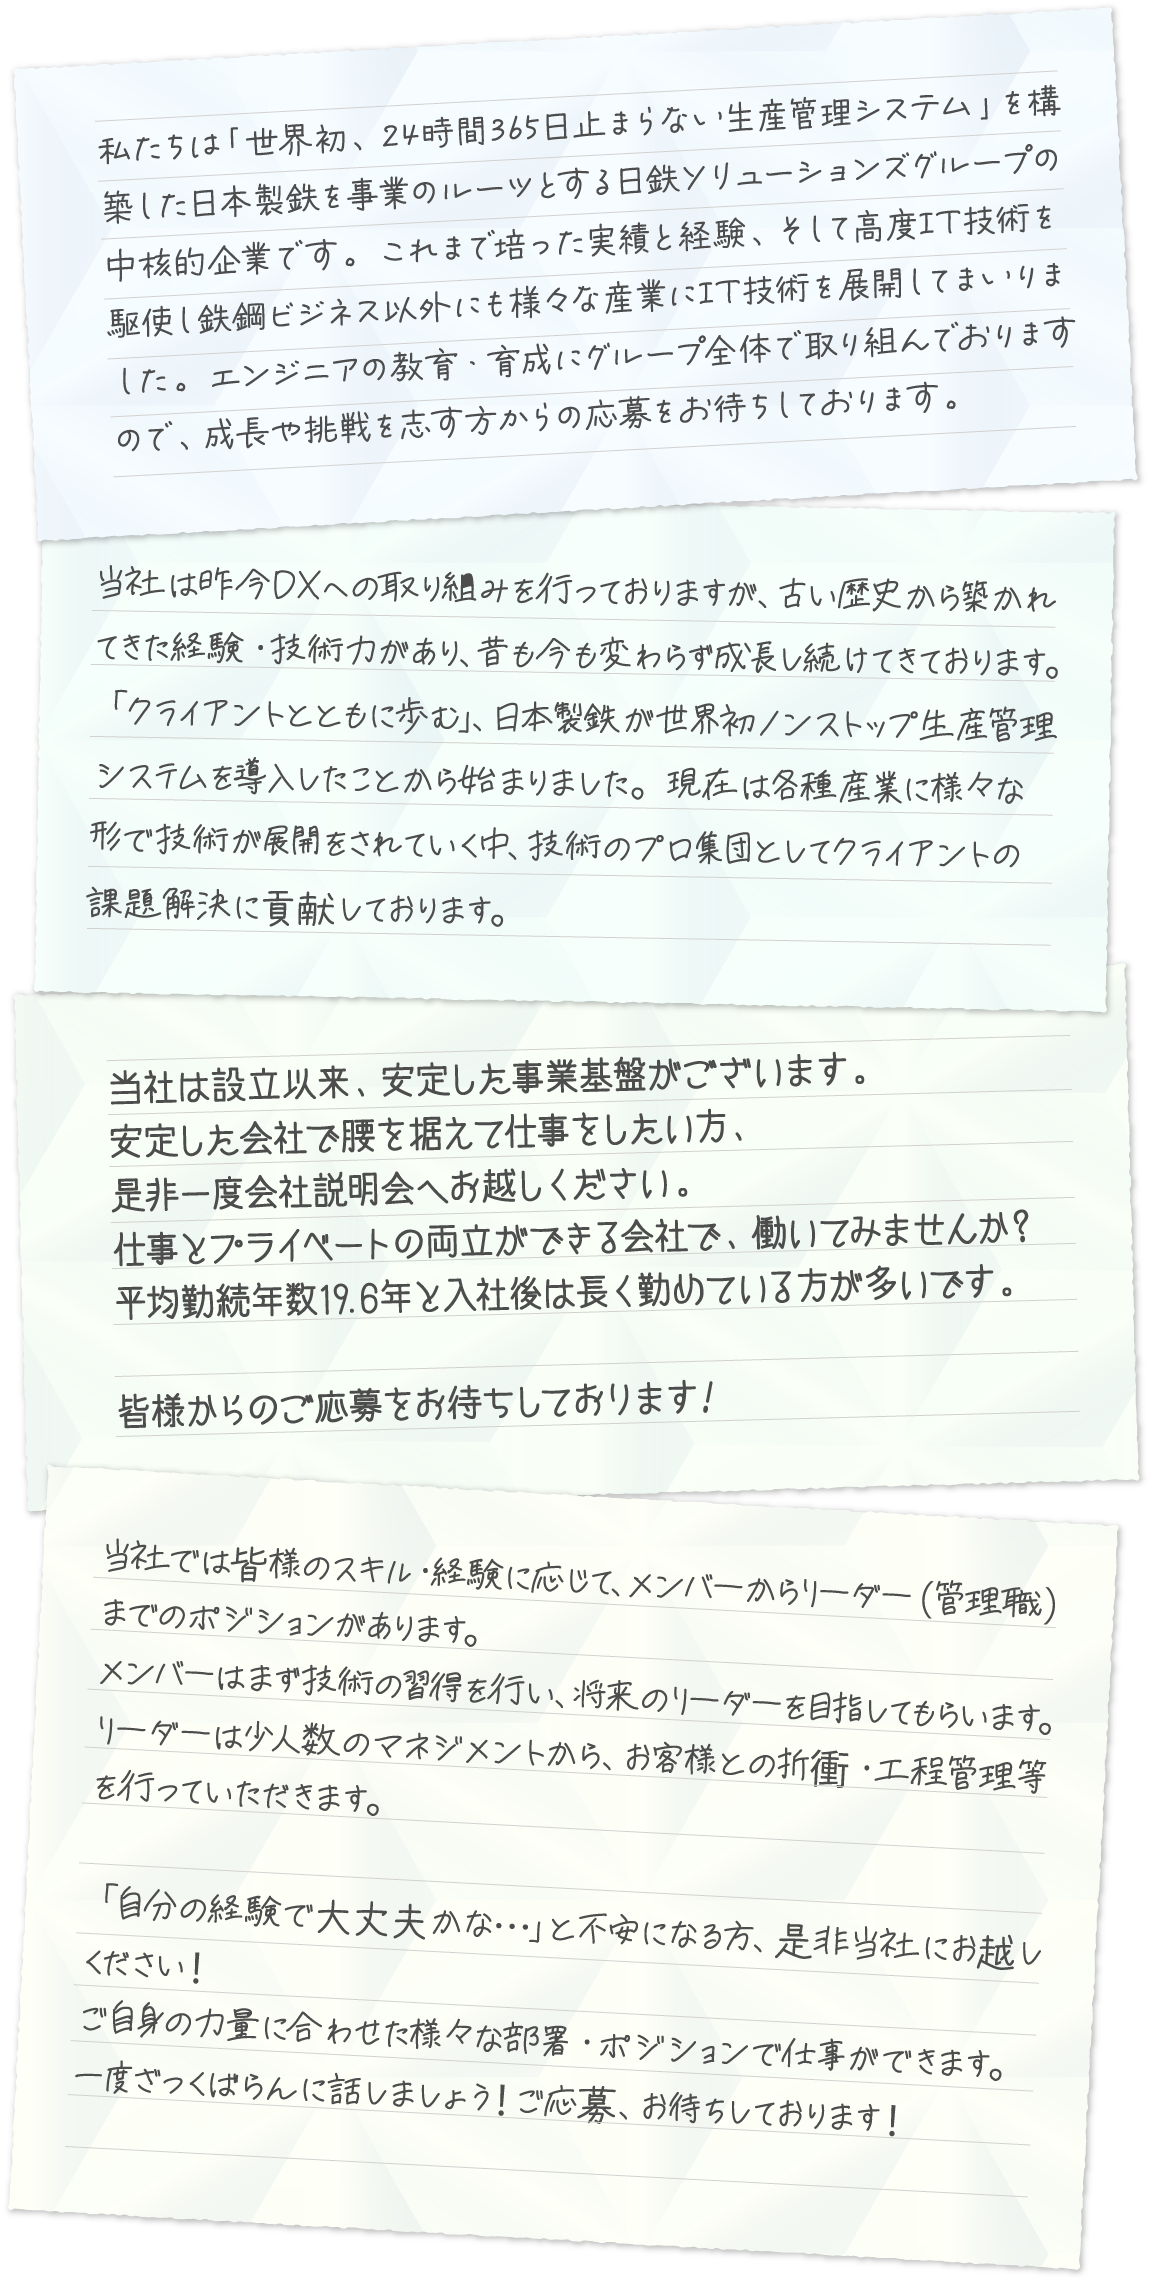 私たちは「世界初、24時間365日止まらない生産管理システム」を構
築した日本製鉄を事業のルーツとする日鉄ソリューションズグループの
中核的企業です。これまで培った実績と経験、そして高度IT技術を
駆使し鉄鋼ビジネス以外にも様々な産業にIT技術を展開してまいりま
した。エンジニアの教育・育成にグループ全体で取り組んでおります
ので、成長や挑戦を志す方からの応募をお待ちしております。
当社は昨今DXへの取り組みを行っておりますが、古い歴史から築かれ
てきた経験・技術力があり、昔も今も変わらず成長し続けてきております。
「クライアントとともに歩む」、日本製鉄が世界初ノンストップ生産管理
システムを導入したことから始まりました。現在は各種産業に様々な
形で技術が展開をされていく中、技術のプロ集団としてクライアントの
課題解決に貢献しております。
当社は設立以来、安定した事業基盤がございます。
安定した会社で腰を据えて仕事をしたい方、
是非一度会社説明会へお越しください。
仕事とプライベートの両立ができる会社で、働いてみませんか?
平均勤続年数19.6年と入社後は長く勤めている方が多いです。
皆様からのご応募をお待ちしております!
当社では皆様のスキル・経験に応じて、メンバーからリーダー(管理職)
までのポジションがあります。
メンバーはまず技術の習得を行い、将来のリーダーを目指してもらいます。
リーダーは少人数のマネジメントから、お客様との折衝・工程管理等
を行っていただきます。
「自分の経験で大丈夫かな…」と不安になる方、是非当社にお越し
ください!
ご自身の力量に合わせた様々な部署・ポジションで仕事ができます。
一度ざっくばらんに話しましょう!ご応募、お待ちしております!